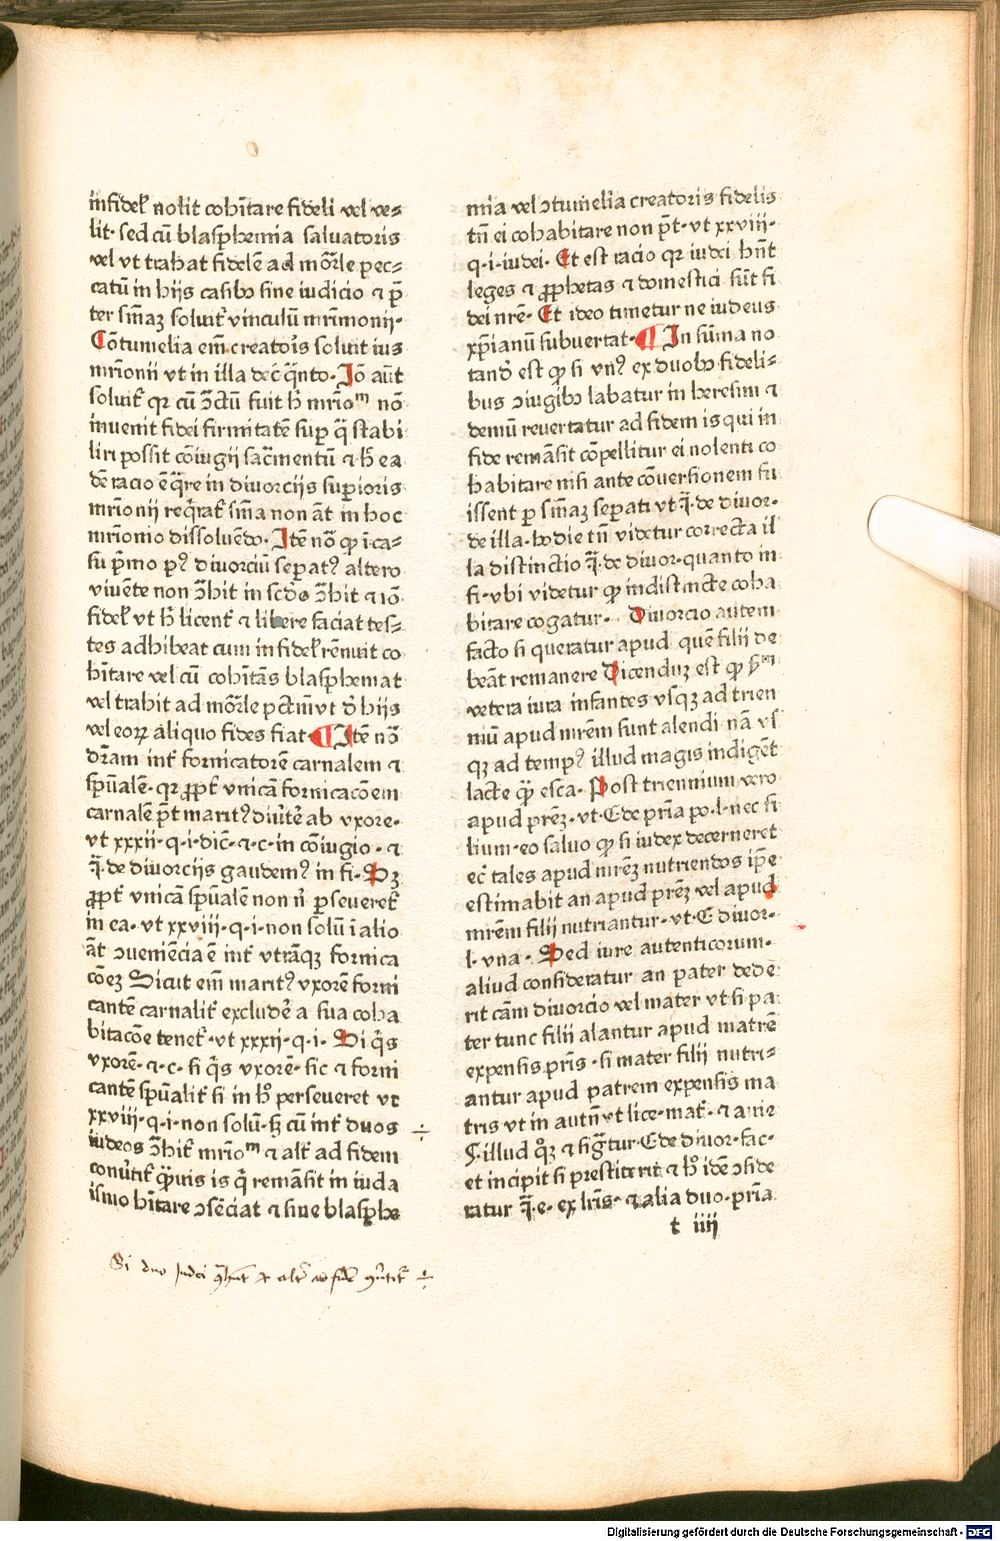 infidel̃ nolit cohĩtare fideli vel ve⸗
lit· sed cũ blasphemia saluatoris
vel vt trahat fidelẽ ad mõrle pec⸗
catũ in hijs casibꝰ sine iudicio ⁊ p̃
ter sniãꝫ soluit̃ vinculũ mr̃imonij·
Cõtumelia em̃ creatoris soluit ius
mr̃ionij vt in illa dec̃ q̃nto· Iõ aũt
soluit̃ qꝛ cũ ↄ̃ctũ fuit h̃ mr̃ioᵐ nõ
inuenit fidei firmitatẽ sup̃ q̃ stabi
liri possit cõiugij sac̃mentũ ⁊ h̃ ea
dẽ racio ẽ q̃re in diuorcijs supioris
mr̃ionij req̃rat̃ sñia non añt in hoc
mr̃ionio dissoluẽdo· Itẽ nõ ꝙ ĩ ca⸗
su p̃mo pꝰ diuorciũ sepatꝰ altero
viuẽte non ↄ̃hit in scd̃o ↄ̃hit ⁊ iõ
fidel̃ vt h̃ licent̃ ⁊ libere faciat tes⸗
tes adhibeat cum infidel̃ rẽnuit co
hĩtare vel cũ cohĩtãs blasphemat
vel trahit ad mõrle pctm̃ vt d̃ hijs
vel eoꝝ aliquo fides fiat· ¶ Itẽ nõ
dr̃am int̃ fornicatorẽ carnalem ⁊
spũalẽ· qꝛ ꝓpt̃ vnicã fornicacõem
carnalẽ p̃t maritꝰ diũtẽ ab vxore·
vt xxxii· q· i· dic̃· ⁊ c· in cõiugio· ⁊
q̃· de diuorcijs gaudemꝰ in fi· Sꝫ
ꝓpt̃ vnicã spũalẽ non ñ pseueret̃
in ea· vt xxviii· q· i· non solũ ĩ alio
añt ↄueniẽcia ẽ int̃ vtrãqꝫ fornica
cõeꝫ Sicut em̃ maritꝰ vxorẽ forni
cantẽ carnalit̃ excludẽ a sua coha
bitacõe tenet̃· vt xxxij· q· i· Si q̃s
vxorẽ· ⁊ c· si q̃s vxorẽ· sic ⁊ forni
cantẽ spũalit̃ si in h̊ perseueret vt
xxviii· q· i· non solũ· ꝫ cũ int̃ duos ÷
iudeos ↄ̃hit̃ mr̃ioᵐ ⁊ alt̃ ad fidem
conũtit̃ q̃uis is q̃ remãsit in iuda
ismo hĩtare ↄsẽciat ⁊ siue blasphe
mia vel ↄtumelia creatoris fidelis
tñ ei cohabitare non p̃t· vt xxviii·
q· i· iudei· Et est racio qꝛ iudei hñt
leges ⁊ ꝓphetas ⁊ domestici sũt fi
dei nr̃e· Et ideo timetur ne iudeus
xp̃ianũ subuertat· ¶ In sũma no
tand̃ est ꝙ si vnꝰ ex duobꝰ fideli⸗
bus ↄiugibꝰ labatur in heresim ⁊
demũ reuertatur ad fidem is qui in
fide remãsit cõpellitur ei nolenti co
habitare nisi ante cõuersionem fu
issent p sniãꝫ sepati vt q̃· de diuor·
de illa· hodie tñ videtur correcta il
la distinctio q̃· de diuor· quanto in
fi· vbi videtur ꝙ indistincte coha
bitare cogatur· Diuorcio autem
facto si queratur apud quẽ filij de
beãt remanere Dicenduꝫ est ꝙ s̃ᵐ
vetera iura infantes vsqꝫ ad trien
niũ apud mr̃em sunt alendi nã vs
qꝫ ad tempꝰ illud magis indigẽt
lacte q̃ esca· Post triennium vero
apud pr̃eꝫ· vt· C de pr̃ia po· l· nec fi
lium· eo saluo ꝙ si iudex decerneret
ec̃ tales apud mr̃eꝫ nutriendos ip̃e
estimabit an apud pr̃eꝫ vel apud
mr̃em filij nutriantur· vt· C diuor·
l· vna· Sed iure autenticorum·
aliud consideratur an pater dedẽ
rit cãm diuorcio vel mater vt si pa
ter tunc filij alantur apud matrẽ
expensis pr̃is· si mater filij nutri⸗
antur apud patrem expensis ma
tris vt in autñ vt lice· mat̃· ⁊ auie
§· illud q̊ꝫ ⁊ sig̃tur· C de diuor· fac·
et incipit si prestiterit ⁊ h̊ idẽ ↄside
ratur q̃· e· ex lr̃is· ⁊ alia duo· pr̃ia
t iiij
Si duo Judei ꝯ̃hũt ⁊ alt̃ ad fidẽ ꝯũtit̃ ÷
Digitalisierung gefördert durch die Deutsche Forschungsgemeinschaft - DFG